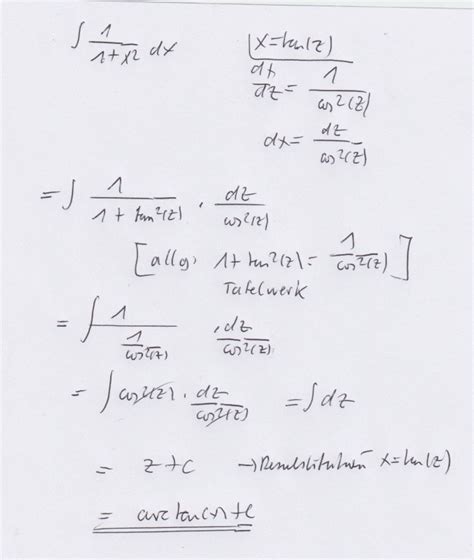 ∫ 1/(1+x²) dx    x=tan(z)
dx/dz = 1/cos²(z)
dx = dz/cos²(z)
= ∫ 1/(1+tan²(z)) · dz/cos²(z)
[allg: 1+tan²(z) = 1/cos²(z)]
Tafelwerk
= ∫ 1/(1/cos²(z)) · dz/cos²(z)
= ∫ cos²(z) · dz/cos²(z) = ∫ dz
= z+c → Resubstitution x=tan(z)
= arctan(x)+c